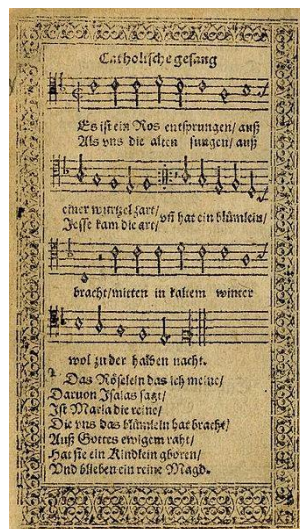 Catholische gesang
Es ist ein Ros entsprungen/ auß
Als vns die alten sungen/ auß
einer wurtzel zart/ vñ hat ein blümlein/
Jesse kam die art/
bracht/mitten in kaltem winter
wol zu der halben nacht.
2. Das Röselein das ich meine/
Daruon Isaias sagt/
Ist Maria die reine/
Die vns das blümlein hat bracht/
Auß Gottes ewigem raht/
Hat sie ein Kindlein gboren/
Vnd blieben ein reine Magd.